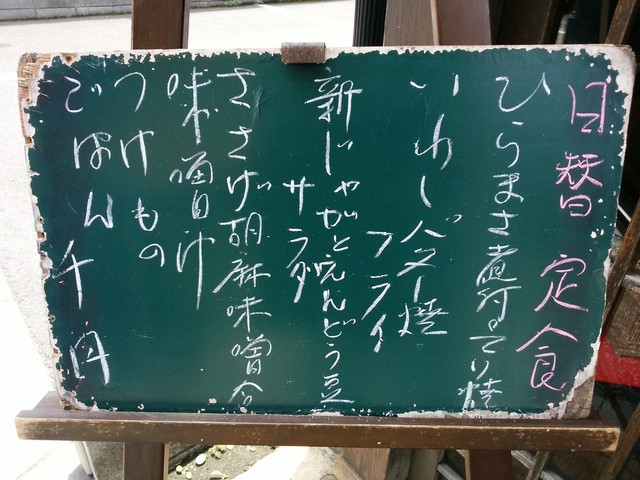 日替 定食
ひらまさ煮付 てり焼
いわしバター焼
フライ
新じゃがとえんどう豆
サラダ
ささげ胡麻味噌合
味噌汁
つけもの
ごはん 千円